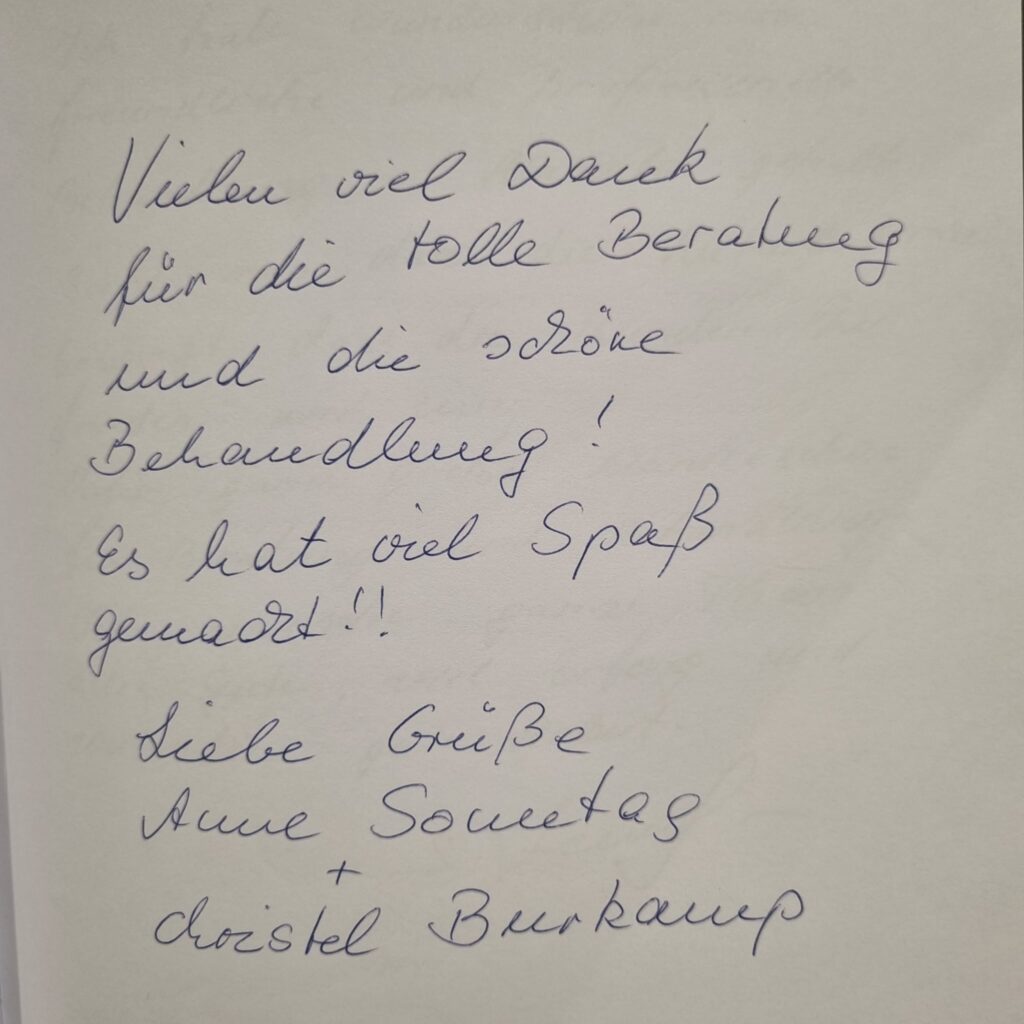 Vielen viel Dank
für die tolle Beratung
und die schöne
Behandlung!
Es hat viel Spaß
gemacht!!
Liebe Grüße
Anne Sonntag
+
Christel Burkamp